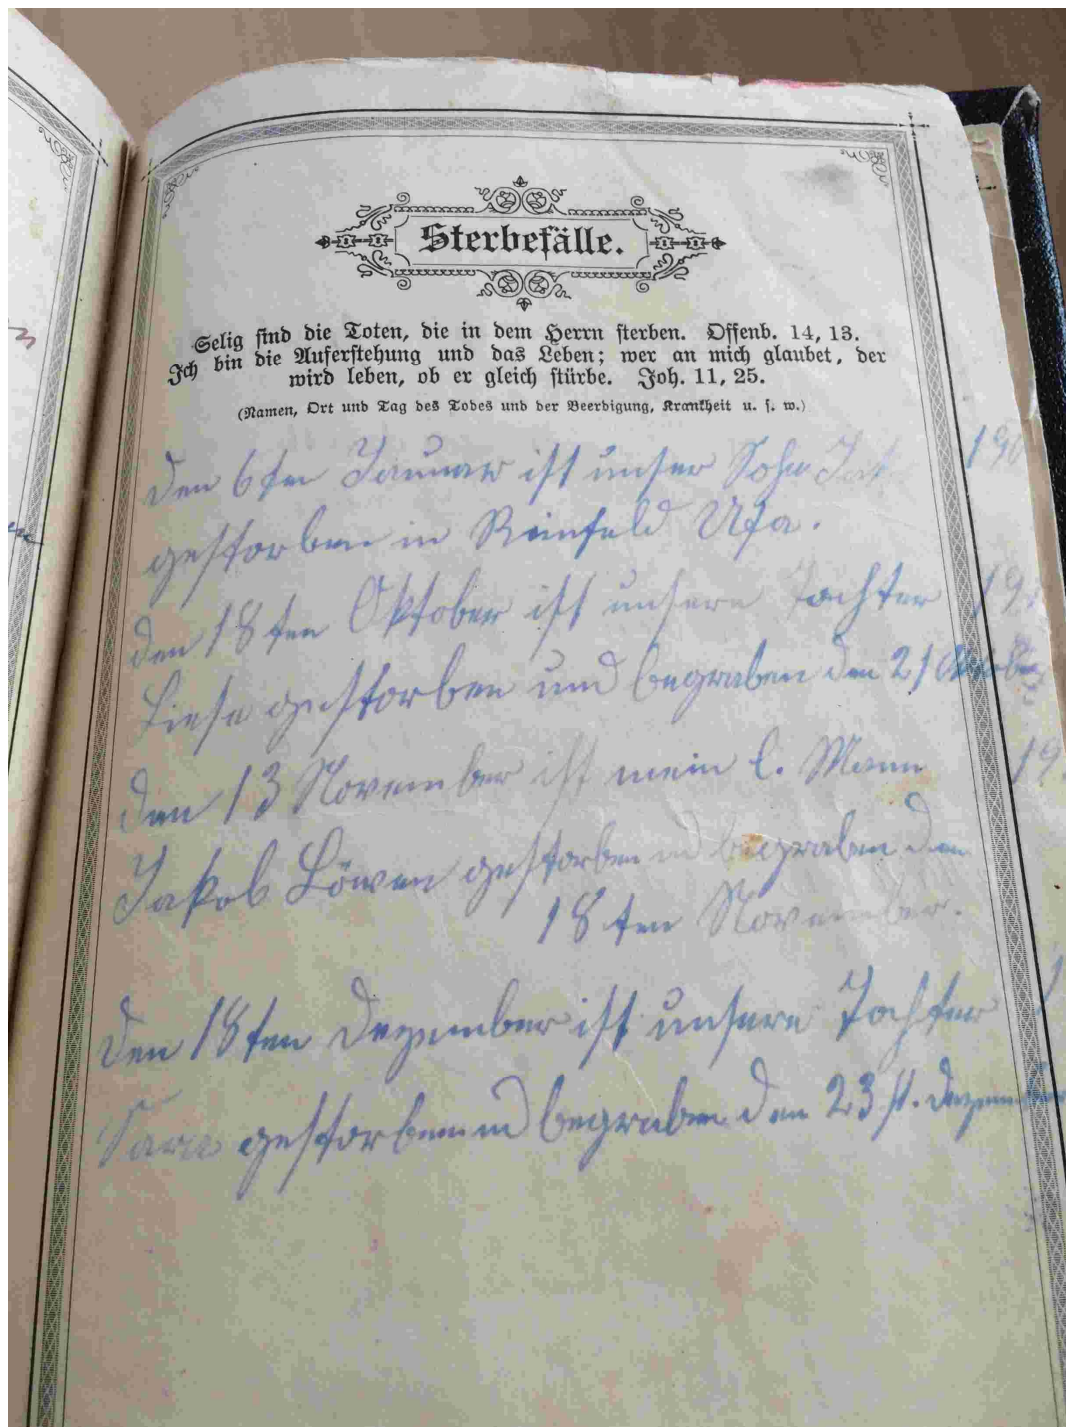 Sterbefälle.
Selig sind die Toten, die in dem Herrn sterben. Offenb. 14, 13.
Ich bin die Auferstehung und das Leben; wer an mich glaubet, der
wird leben, ob er gleich stürbe. Joh. 11, 25.
(Namen, Ort und Tag des Todes und der Beerdigung, Krankheit u. s. w.)
den 6ten Januar ist unser Sohn
gestorben in Reinfeld Ufa.
den 18ten Oktober ist unsere Tochter
Liese gestorben und begraben den 21 Oktober
den 13 November ist mein l. Mann
Jakob Löwen gestorben und begraben den
18ten November.
Den 18ten Dezember ist unsere Tochter
Sara gestorben und begraben den 23st. Dezember